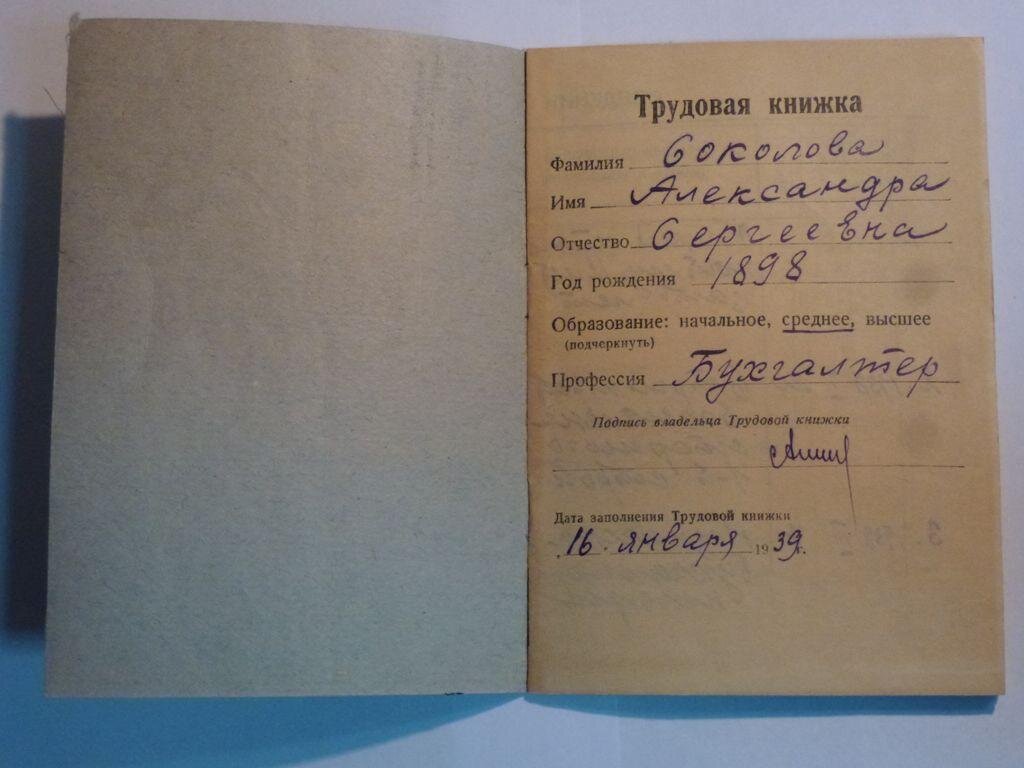 Трудовая книжка
Фамилия Соколова
Имя Александра
Отчество Сергеевна
Год рождения 1898
Образование: начальное, среднее, высшее
(подчеркнуть)
Профессия Бухгалтер
Подпись владельца Трудовой книжки
Дата заполнения Трудовой книжки
16 января 1939г.